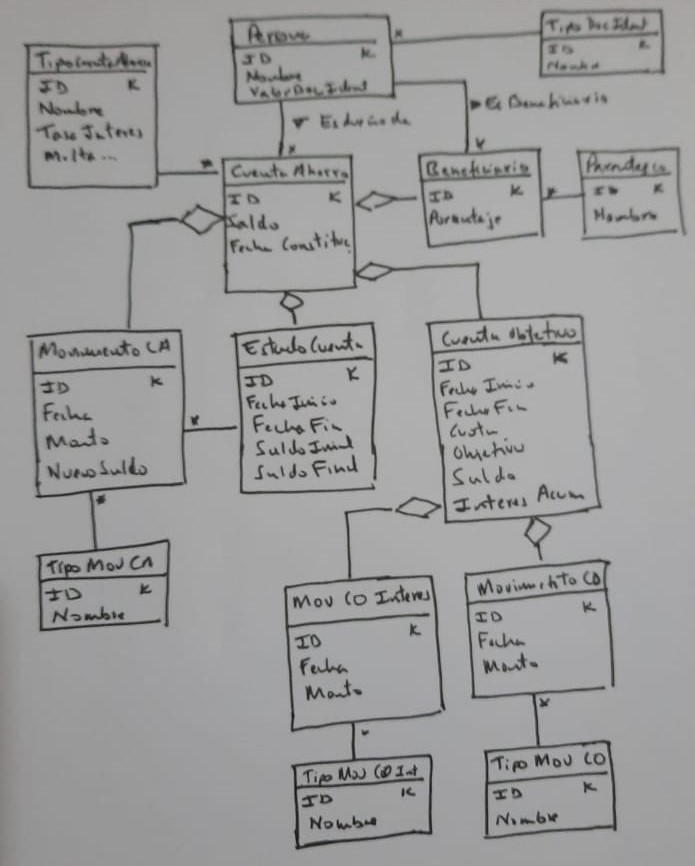 Persona
ID K
Nombre
Valor Doc Ident
*
Tipo Doc Ident
ID K
Nombre
Tipo Cuenta Ahorro
ID K
Nombre
Tasa Interes
Multa ...
*
Es dueño de
*
Es Beneficiario
*
Cuenta Ahorro
ID K
Saldo
Fecha Constituc
Beneficiario
ID K
Porcentaje
*
Parentesco
ID K
Nombre
Movimiento CA
ID K
Fecha
Monto
Nuevo Saldo
*
*
Estado Cuenta
ID K
Fecha Inicio
Fecha Fin
Saldo Inicial
Saldo Final
Cuenta Objetivo
ID K
Fecha Inicio
Fecha Fin
Cuota
Objetivo
Saldo
Interes Acum
Tipo Mov CA
ID K
Nombre
Mov CO Interes
ID K
Fecha
Monto
*
Movimiento CO
ID K
Fecha
Monto
*
Tipo Mov CO Int
ID K
Nombre
Tipo Mov CO
ID K
Nombre